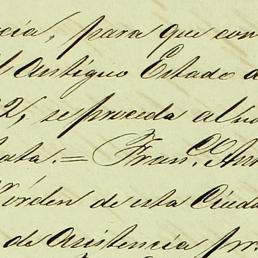 cia, para que con
l Antiguo Estado d
2, se proceda al no
ata.= Fran.co An
órden de esta Ciuda
de Asistencia pr